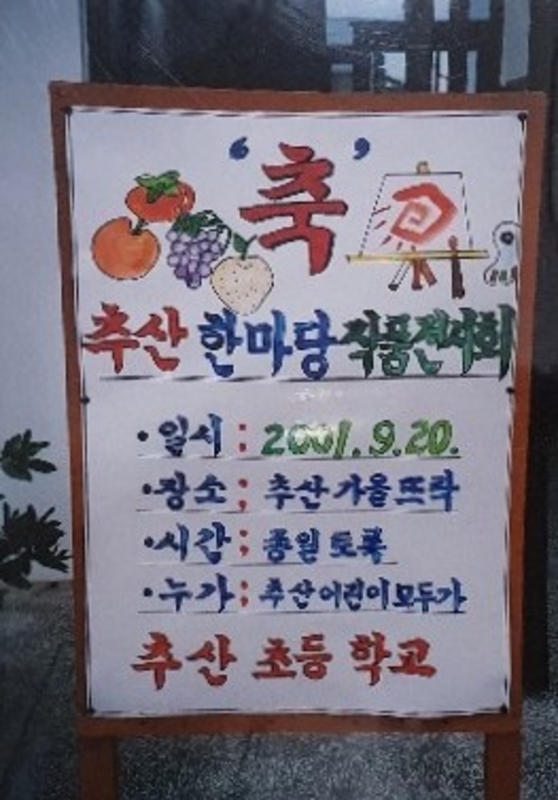 ‘축’
추산 한마당 작품전시회
·일시 : 2001. 9. 20.
·장소 : 추산 가을 뜨락
·시간 : 종일토록
·누가 : 추산 어린이 모두가
추산 초등 학교